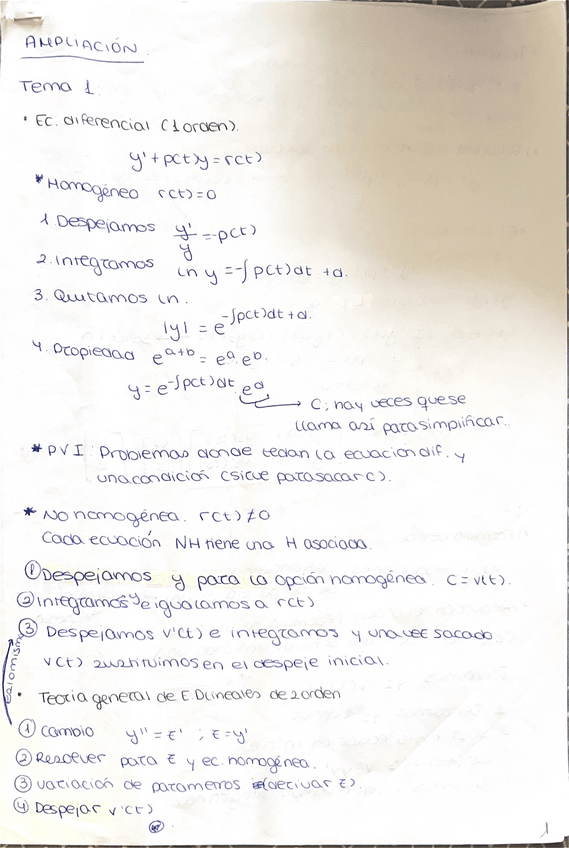 AMPLIACIÓN
Tema 1:
• Ec. diferencial (1 orden).
y' + p(t)y = r(t)
* Homogéneo r(t)=0
1. Despejamos y'/y = -p(t)
2. Integramos ln y = -∫p(t)dt + d.
3. Quitamos ln.
|y| = e^{-∫p(t)dt + d}.
4. Propiedad e^{a+b} = e^a · e^b.
y = e^{-∫p(t)dt} · e^d
→ C; hay veces que se
llama así para simplificar.
* PVI: Problemas donde te dan la ecuación dif. y
una condición (sirve para sacar C).
* No homogénea. r(t) ≠ 0
Cada ecuación NH tiene una H asociada.
① Despejamos y para la opción homogénea. C = v(t).
② Integramos y e igualamos a r(t)
③ Despejamos v'(t) e integramos y una vez sacado
v(t) sustituimos en el despeje inicial.
es lo mismo
• Teoría general de E.D lineales de 2 orden
① Cambio y'' = z' ; z = y'
② Resolver para z y ec. homogénea.
③ variación de parametros (derivar z).
④ Despejar v'(t)
1